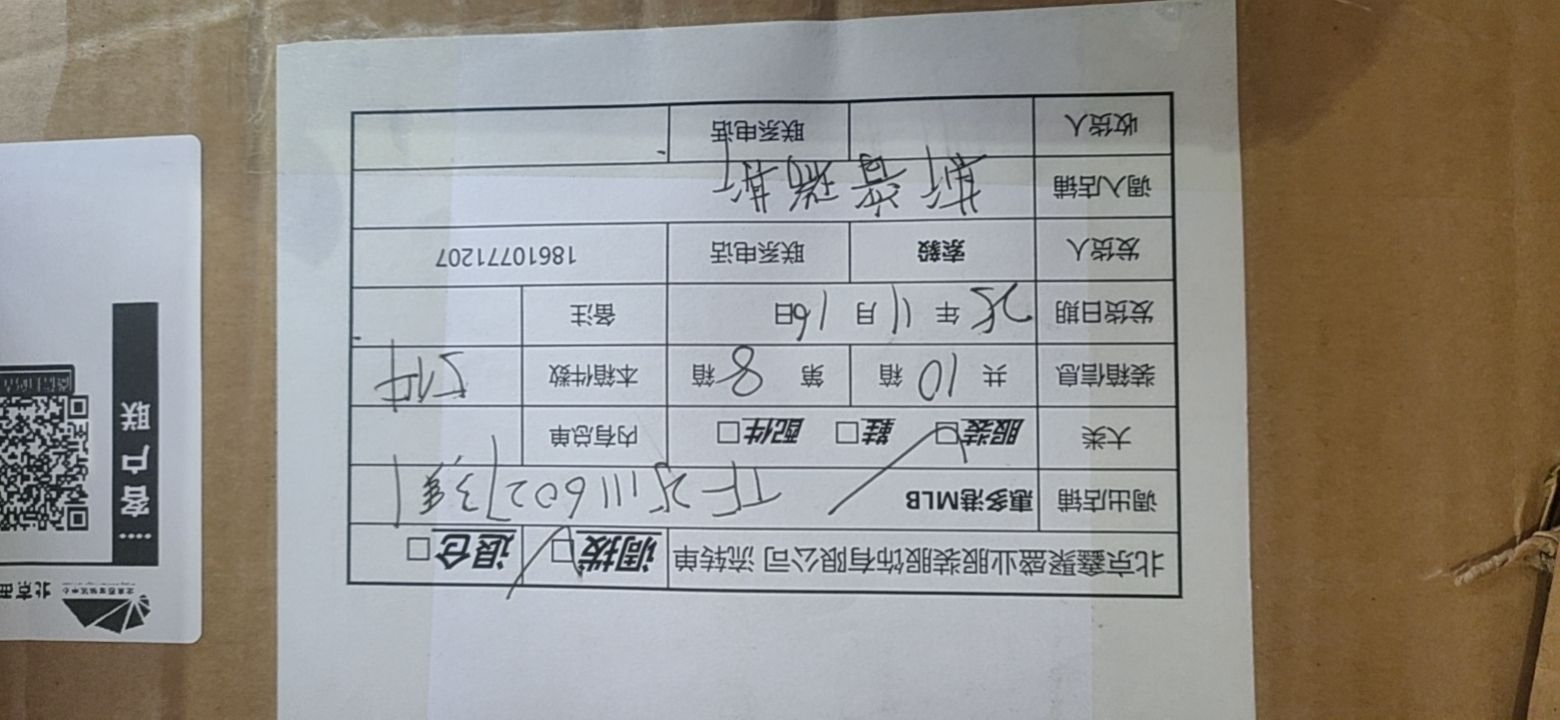 北京鑫聚盛业服装服饰有限公司 流转单 调拨☑ 退仓□
调出店铺 惠多港MLB TF251116027
大类 服装☑ 鞋□ 配件□ 内有总单
装箱信息 共 10 箱 第 8 箱 本箱件数 51件
发货日期 25年 11月 16日 备注
发货人 索毅 联系电话 18610771207
调入店铺 斯普瑞斯
收货人 联系电话
客户联